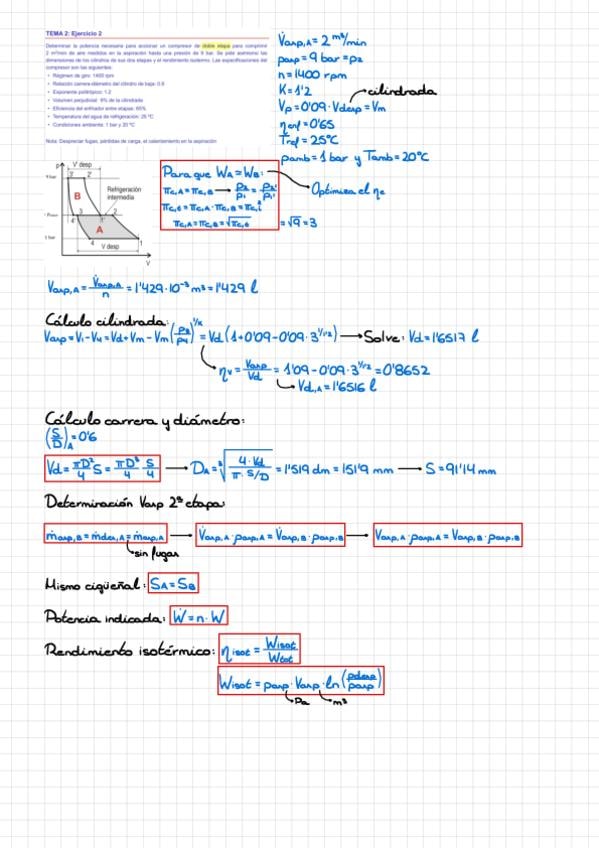 TEMA 2: Ejercicio 2
Determinar la potencia necesaria para accionar un compresor de doble etapa para comprimir
2 m³/min de aire medidos en la aspiración hasta una presión de 9 bar. Se pide asimismo las
dimensiones de los cilindros de sus dos etapas y el rendimiento isotermo. Las especificaciones del
compresor son las siguientes:
• Régimen de giro: 1400 rpm
• Relación carrera-diámetro del cilindro de baja: 0.6
• Exponente politrópico: 1.2
• Volumen perjudicial: 9% de la cilindrada
• Eficiencia del enfriador entre etapas: 65%
• Temperatura del agua de refrigeración: 25 ºC
• Condiciones ambiente: 1 bar y 20 ºC
Nota: Despreciar fugas, pérdidas de carga, el calentamiento en la aspiración
V̇asp,A = 2 m³/min
pasp = 9 bar = p2
n = 1400 rpm
K = 1'2
cilindrada
Vp = 0'09·Vdesp = Vm
ηenf = 0'65
Tref = 25ºC
pamb = 1 bar y Tamb = 20ºC
p
V' desp
9 bar
3'
2'
B
Refrigeración
intermedia
3
2
4'
1'
A
1 bar
4
1
V desp
V
Para que WA = WB:
πc,A = πc,B → p2/p1 = p2'/p1'
πc,t = πc,A · πc,B = πc,i²
πc,A = πc,B = √πc,t = √9 = 3
Optimiza el ηc
Vasp,A = V̇asp,A/n = 1'429·10⁻³ m³ = 1'429 l
Cálculo cilindrada:
Vasp = V1 - V4 = Vd + Vm - Vm (p3/p4)^1/K = Vd (1 + 0'09 - 0'09·3^1/1'2) → Solve: Vd = 1'6517 l
ηv = Vasp/Vd = 1'09 - 0'09·3^1/1'2 = 0'8652
Vd,A = 1'6516 l
Cálculo carrera y diámetro:
(S/D)A = 0'6
Vd = πD²/4 S = πD³/4 S/4 → DA = ³√(4·Vd/π·S/D) = 1'519 dm = 151'9 mm → S = 91'14 mm
Determinación Vasp 2ª etapa:
ṁasp,B = ṁdes,A = ṁasp,A → V̇asp,A · pasp,A = V̇asp,B · pasp,B → Vasp,A · pasp,A = Vasp,B · pasp,B
sin fugas
Mismo cigüeñal: SA = SB
Potencia indicada: Ẇ = n·W
Rendimiento isotérmico: ηisot = Wisot/Wtot
Wisot = pasp · Vasp · ln (pdesp/pasp)
Pa
m³